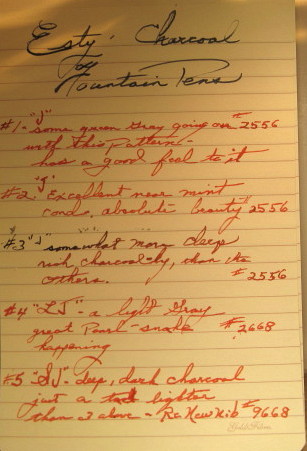 Esty. Charcoal
Joy
Fountain Pens
#1 - "J"
some green Gray going on #2556
with this pattern -
has a good feel to it
#2. "J".
Excellent near mint
cond, absolute beauty 2556
#3 "J" somewhat more deep
rich charcoal-ly, than the
others. #2556
#4 "LJ" - a light Gray
great Pearl-snake #2668
happening
#5 "SJ" - deep, dark charcoal
just a tad lighter
than #3 above - Rc New Nib #9668